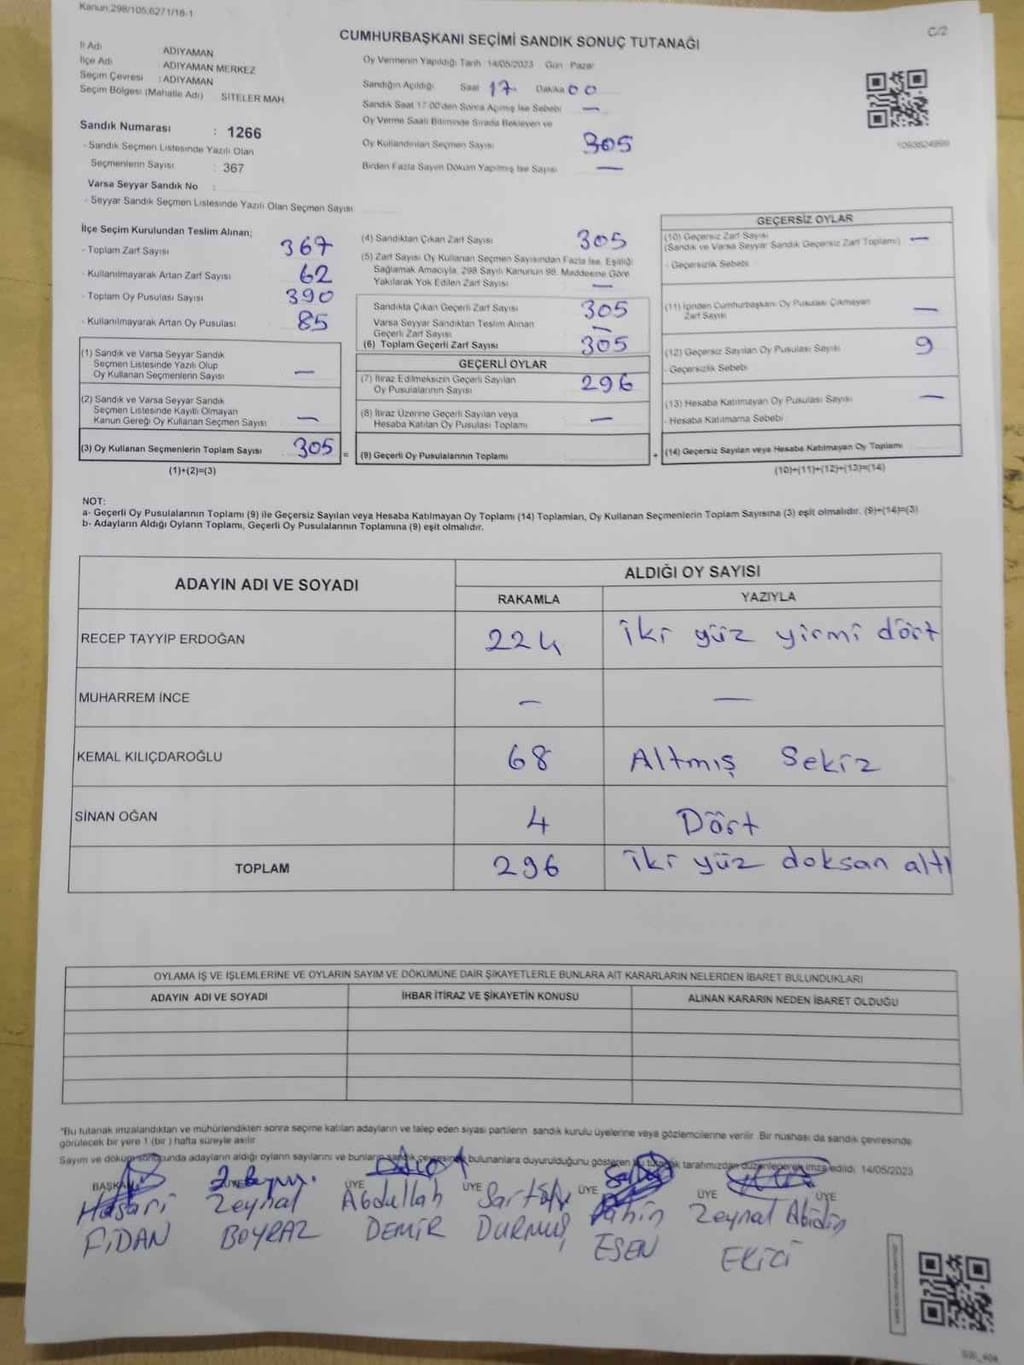 Kanun.298/105,6271/18-1
C/2
CUMHURBAŞKANI SEÇİMİ SANDIK SONUÇ TUTANAĞI
İl Adı : ADIYAMAN
İlçe Adı : ADIYAMAN MERKEZ
Seçim Çevresi : ADIYAMAN
Seçim Bölgesi (Mahalle Adı) SİTELER MAH
Sandık Numarası : 1266
- Sandık Seçmen Listesinde Yazılı Olan
Seçmenlerin Sayısı : 367
Varsa Seyyar Sandık No :
- Seyyar Sandık Seçmen Listesinde Yazılı Olan Seçmen Sayısı
Oy Vermenin Yapıldığı Tarih : 14/05/2023 Gün : Pazar
Sandığın Açıldığı Saat 17 Dakika 00
Sandık Saat 17:00'den Sonra Açılmış İse Sebebi —
Oy Verme Saati Bitiminde Sırada Bekleyen ve
Oy Kullandırılan Seçmen Sayısı 305
Birden Fazla Sayım Döküm Yapılmış İse Sayısı —
İlçe Seçim Kurulundan Teslim Alınan;
- Toplam Zarf Sayısı 367
- Kullanılmayarak Artan Zarf Sayısı 62
- Toplam Oy Pusulası Sayısı 390
- Kullanılmayarak Artan Oy Pusulası 85
(1) Sandık ve Varsa Seyyar Sandık
Seçmen Listesinde Yazılı Olup
Oy Kullanan Seçmenlerin Sayısı —
(2) Sandık ve Varsa Seyyar Sandık
Seçmen Listesinde Kayıtlı Olmayan
Kanun Gereği Oy Kullanan Seçmen Sayısı —
(3) Oy Kullanan Seçmenlerin Toplam Sayısı 305 =
(1)+(2)=(3)
(4) Sandıktan Çıkan Zarf Sayısı 305
(5) Zarf Sayısı Oy Kullanan Seçmen Sayısından Fazla İse, Eşitliği
Sağlamak Amacıyla, 298 Sayılı Kanunun 98. Maddesine Göre
Yakılarak Yok Edilen Zarf Sayısı —
Sandıkta Çıkan Geçerli Zarf Sayısı 305
Varsa Seyyar Sandıktan Teslim Alınan
Geçerli Zarf Sayısı —
(6) Toplam Geçerli Zarf Sayısı 305
GEÇERLİ OYLAR
(7) İtiraz Edilmeksizin Geçerli Sayılan
Oy Pusulalarının Sayısı 296
(8) İtiraz Üzerine Geçerli Sayılan veya
Hesaba Katılan Oy Pusulası Toplamı —
(9) Geçerli Oy Pusulalarının Toplamı +
GEÇERSİZ OYLAR
(10) Geçersiz Zarf Sayısı
(Sandık ve Varsa Seyyar Sandık Geçersiz Zarf Toplamı) —
- Geçersizlik Sebebi
(11) İçinden Cumhurbaşkanı Oy Pusulası Çıkmayan
Zarf Sayısı —
(12) Geçersiz Sayılan Oy Pusulası Sayısı 9
- Geçersizlik Sebebi
(13) Hesaba Katılmayan Oy Pusulası Sayısı —
- Hesaba Katılmama Sebebi
(14) Geçersiz Sayılan veya Hesaba Katılmayan Oy Toplamı
(10)+(11)+(12)+(13)=(14)
NOT:
a- Geçerli Oy Pusulalarının Toplamı (9) ile Geçersiz Sayılan veya Hesaba Katılmayan Oy Toplamı (14) Toplamları, Oy Kullanan Seçmenlerin Toplam Sayısına (3) eşit olmalıdır. (9)+(14)=(3)
b- Adayların Aldığı Oyların Toplamı, Geçerli Oy Pusulalarının Toplamına (9) eşit olmalıdır.
ADAYIN ADI VE SOYADI ALDIĞI OY SAYISI
RAKAMLA YAZIYLA
RECEP TAYYİP ERDOĞAN 224 iki yüz yirmi dört
MUHARREM İNCE — —
KEMAL KILIÇDAROĞLU 68 Altmış Sekiz
SİNAN OĞAN 4 Dört
TOPLAM 296 iki yüz doksan altı
OYLAMA İŞ VE İŞLEMLERİNE VE OYLARIN SAYIM VE DÖKÜMÜNE DAİR ŞİKAYETLERLE BUNLARA AİT KARARLARIN NELERDEN İBARET BULUNDUKLARI
ADAYIN ADI VE SOYADI İHBAR İTİRAZ VE ŞİKAYETİN KONUSU ALINAN KARARIN NEDEN İBARET OLDUĞU
"Bu tutanak imzalandıktan ve mühürlendikten sonra seçime katılan adayların ve talep eden siyasi partilerin sandık kurulu üyelerine veya gözlemcilerine verilir. Bir nüshası da sandık çevresinde
görülecek bir yere 1 (bir) hafta süreyle asılır.
Sayım ve döküm sonucunda adayların aldığı oyların sayılarını ve bunların sandık çevresinde bulunanlara duyurulduğunu gösteren bu tutanak tarafımızdan düzenlenerek imza edildi. 14/05/2023
BAŞKAN ÜYE ÜYE ÜYE ÜYE ÜYE
Zeynal Abdullah Şahin Zeynal Abidin
FİDAN BOYRAZ DEMİR DURMUŞ ESEN EKİCİ